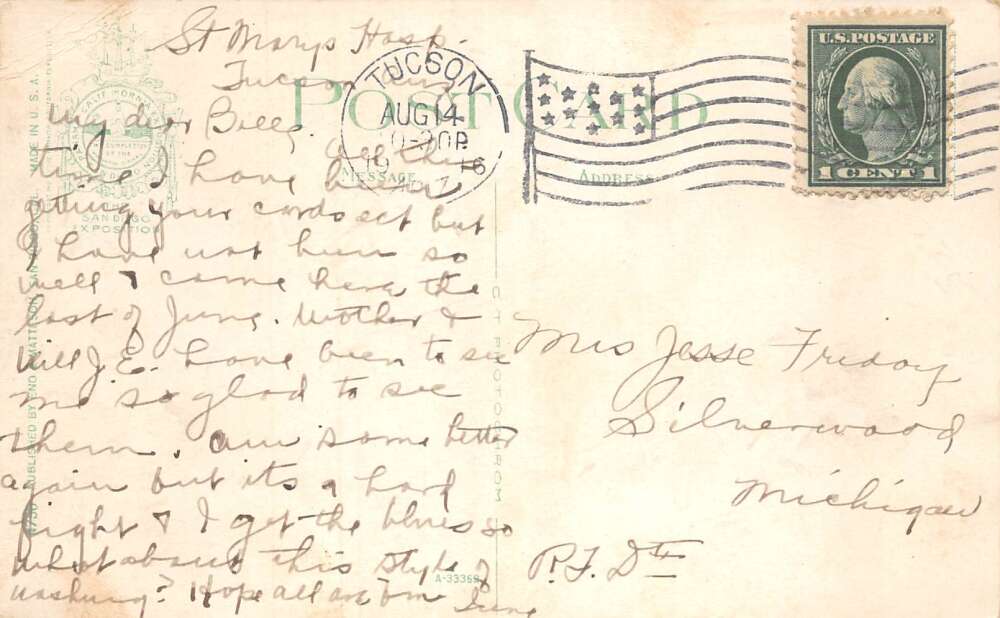 St Marys Hosp.
Tucson Ariz
My dear Belle.
all this
time I have been
getting your cards ect but
I have not been so
well & came here the
last of June. Mother &
Will J. E. have been to see
me so glad to see
them. am some better
again but its a hard
fight & I get the blues so
what about this style of
washing? Hope all are O.K.
POST CARD
MESSAGE
ADDRESS
TUCSON
AUG 14
1916
U.S. POSTAGE
1 CENT 1
Mrs Jesse Friday
Silverwood
Michigan
R.F.D.
CALIFORNIA
SAN DIEGO
EXPOSITION
MADE IN U.S.A.
PUBLISHED BY ENO & MATTESON, SAN DIEGO
A-33368